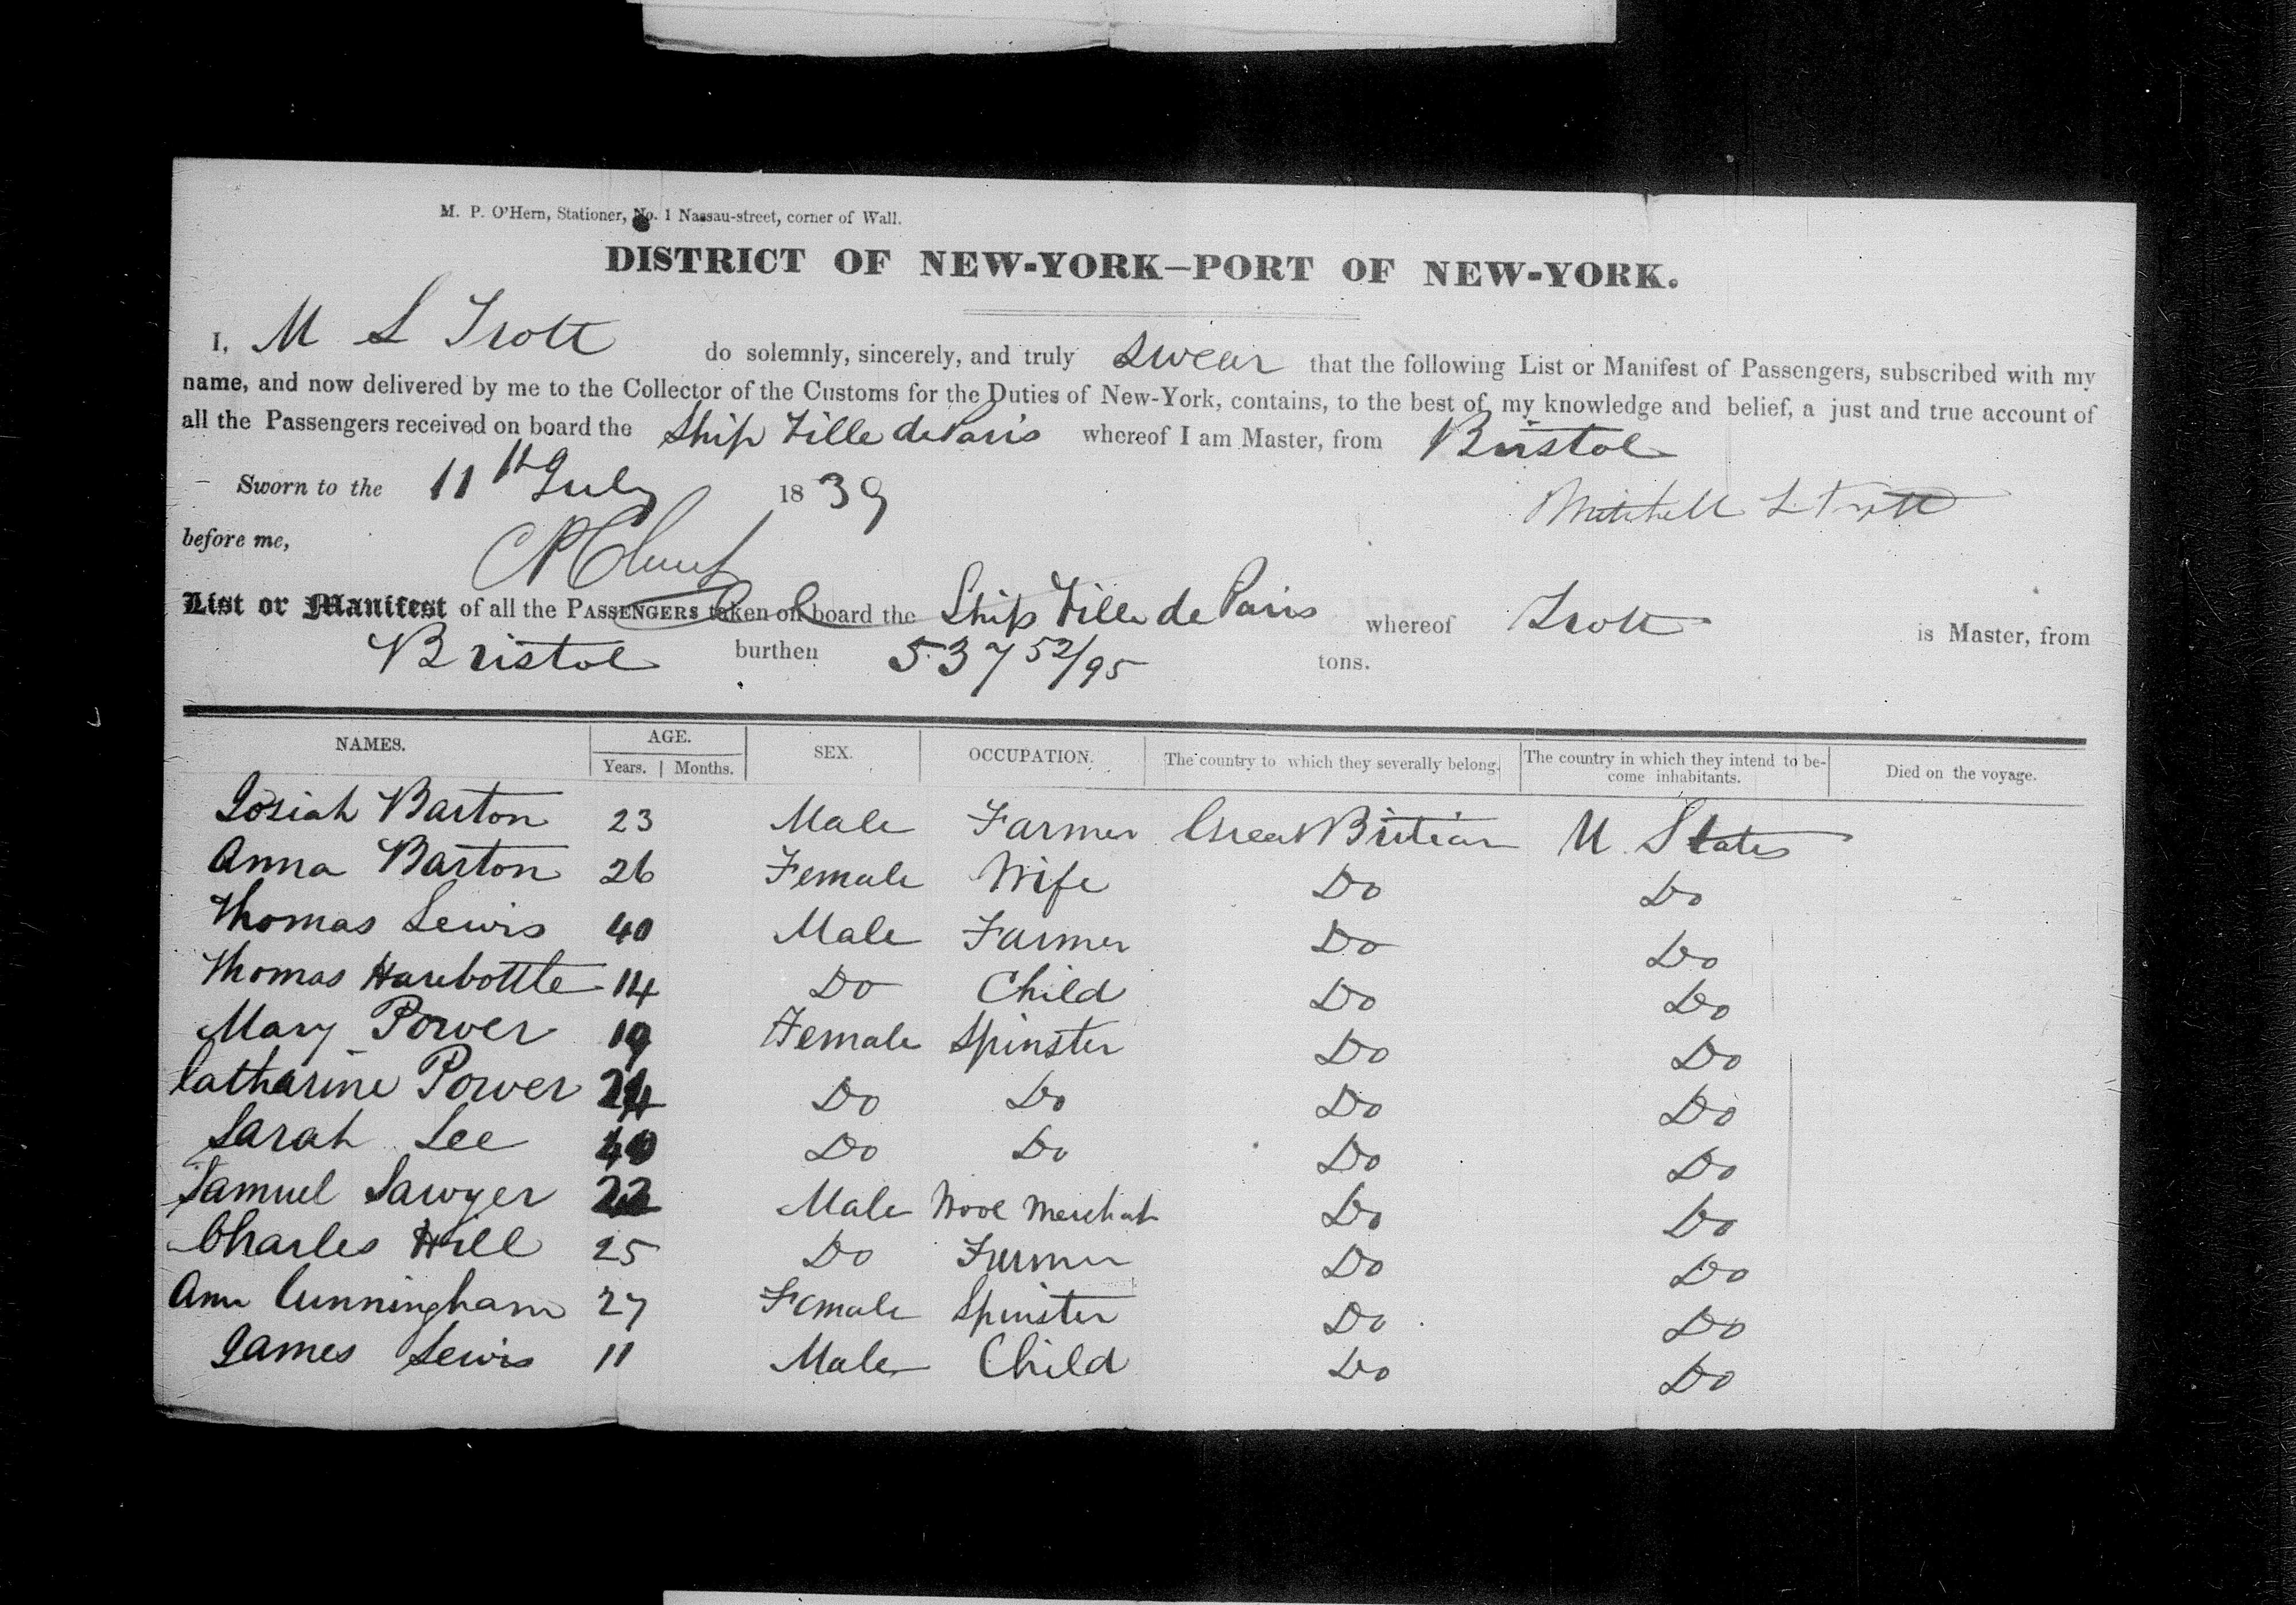 M. P. O'Hern, Stationer, No. 1 Nassau-street, corner of Wall.
DISTRICT OF NEW-YORK—PORT OF NEW-YORK.
I, M L Trott do solemnly, sincerely, and truly swear that the following List or Manifest of Passengers, subscribed with my
name, and now delivered by me to the Collector of the Customs for the Duties of New-York, contains, to the best of my knowledge and belief, a just and true account of
all the Passengers received on board the Ship Ville de Paris whereof I am Master, from Bristol
Sworn to the 11th July 1839 Mitchell L Trott
before me,
List or Manifest of all the PASSENGERS taken on board the Ship Ville de Paris whereof Trott is Master, from
Bristol burthen 537 52/95 tons.
NAMES. AGE. Years. Months. SEX. OCCUPATION. The country to which they severally belong. The country in which they intend to be-
come inhabitants. Died on the voyage.
Josiah Barton 23 Male Farmer Great Britian U. States
Anna Barton 26 Female Wife Do Do
Thomas Lewis 40 Male Farmer Do Do
Thomas Harebottle 14 Do Child Do Do
Mary Power 19 Female Spinster Do Do
Catharine Power 24 Do Do Do Do
Sarah Lee 40 Do Do Do Do
Samuel Sawyer 22 Male Wool Merchat Do Do
Charles Hill 25 Do Farmer Do Do
Ann Cunningham 27 Female Spinster Do Do
James Lewis 11 Male Child Do Do